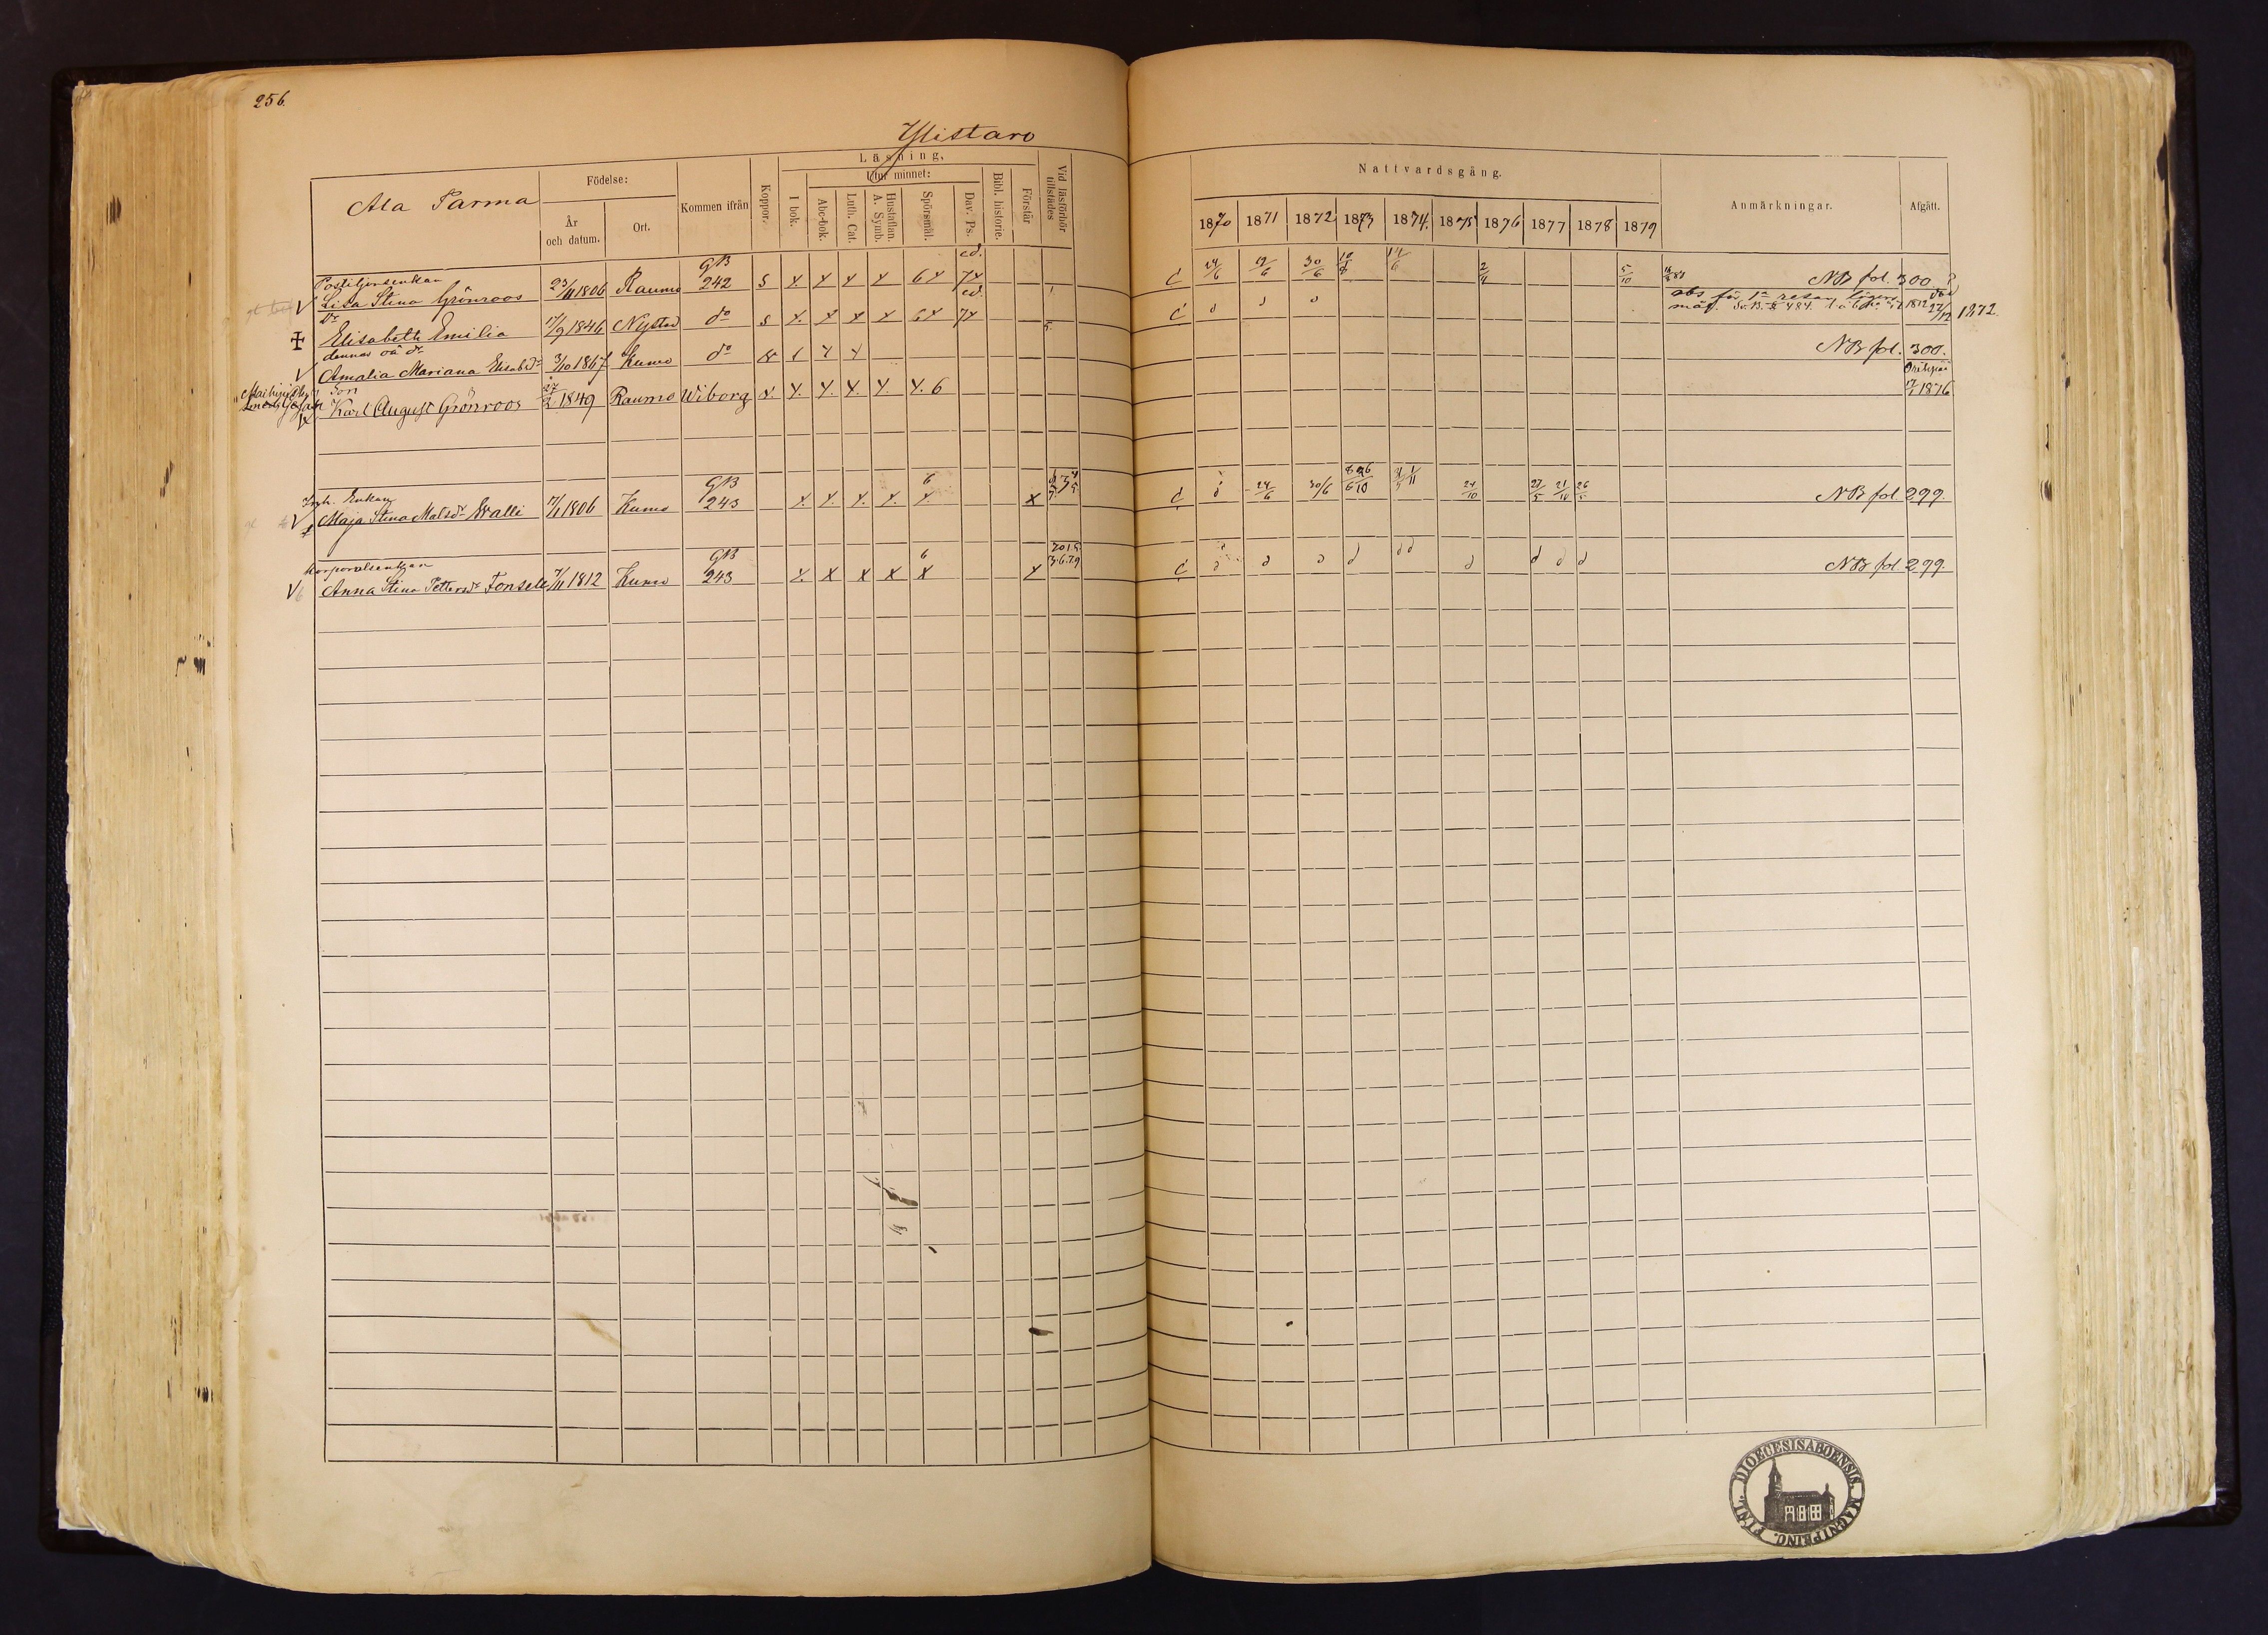 256.
Ylistaro
Ala Parma
Födelse:
År och datum.
Ort.
Kommen ifrån
Koppor.
Läsning,
Utur minnet:
I bok.
Abc-bok.
Luth. Cat.
Hustaflan. A. Symb.
Spörsmål.
Dav. Ps.
Bibl. historie.
Förstår
Vid läsförhör tillstädes
Nattvardsgång.
1870 1871 1872 1873 1874. 1875 1876 1877 1878 1879
Anmärkningar.
Afgått.
Postiljonsenkan GB ed.
Lisa Stina Grönroos 23/11 1806 Raumo 242 s x x x x 6 x 7x C 24/6 19/6 30/6 14/6 2/4 5/10 NB fol. 300
Dr ed.
Elisabeth Emilia 17/9 1846 Nystad do s x x x x 6 x 7x C 27/12 1872
dennas oä dr
Amalia Mariana Elisabdr 3/10 1867 Kumo do x x x NB fol. 300.
Son
Karl August Grönroos 27/2 1849 Raumo Wiborg x. x. x. x. x. x. 6 17/1 1876
Inh. Enkan GB 6
Maja Stina Matsdr Walli 17/1 1806 Kumo 243 x. x. x. x. x. x C 24/6 30/6 24/10 27/5 21/10 26/5 NB fol 299.
Korporalsenkan GB 6
Anna Stina Pettersdr Fonsell 7/11 1812 Kumo 243 x x x x x x C NB fol 299.
FINL. DIOECESIS ABOENSIS. MAGNI PRINC.